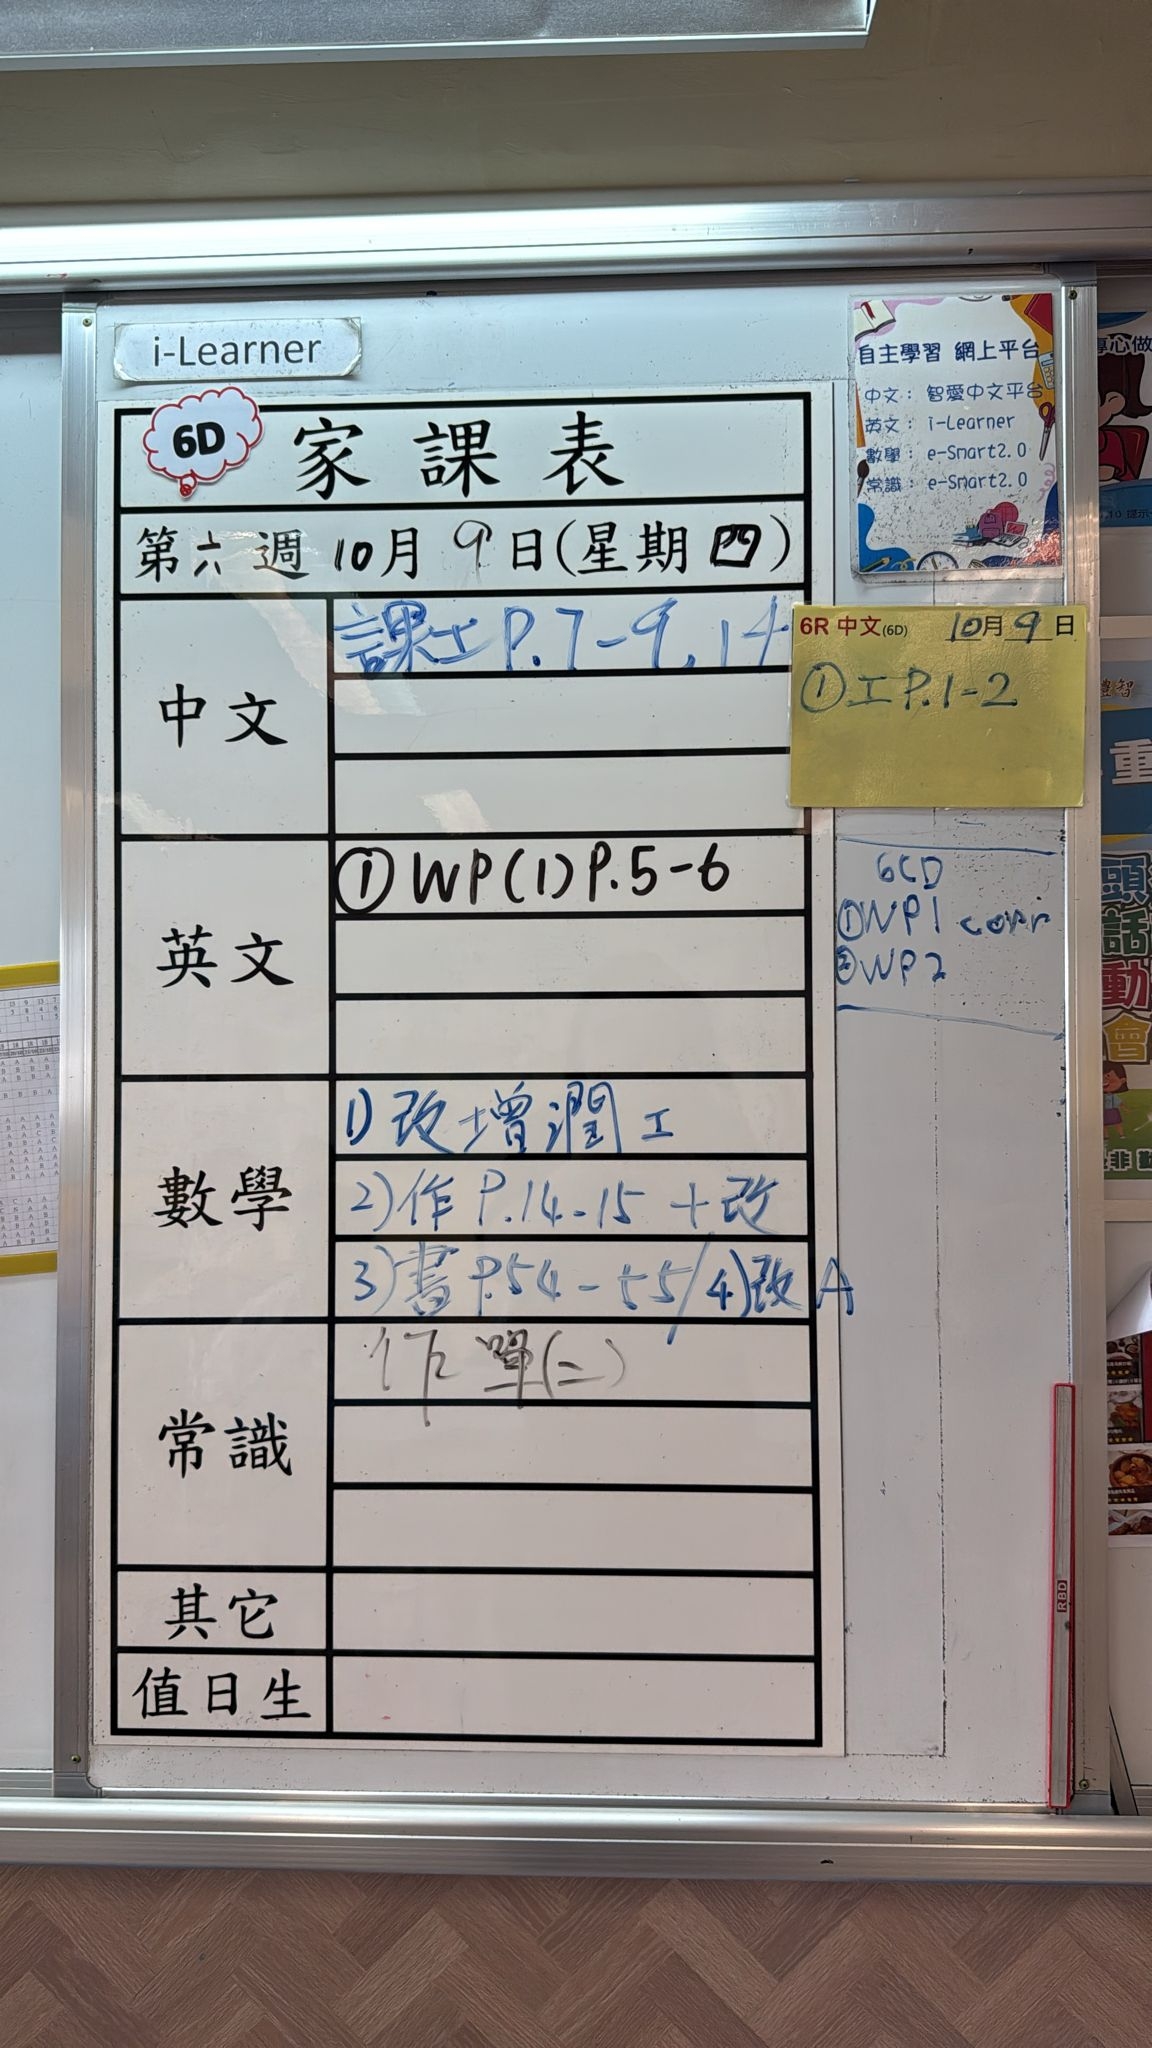 i-Learner
6D
家課表
第六週10月9日(星期四)
中文
課士P.7-9,14
英文
①WP(1)P.5-6
數學
1)改增潤工
2)作P.14-15+改
3)書P.54-55/4)改A
常識
作單(二)
其它
值日生
自主學習 網上平台
中文：智愛中文平台
英文：i-Learner
數學：e-Smart2.0
常識：e-Smart2.0
6R中文(6D) 10月9日
①工P.1-2
6CD
①WP1 corr
②WP2
專心做
重
頭
話
動
會
RBD